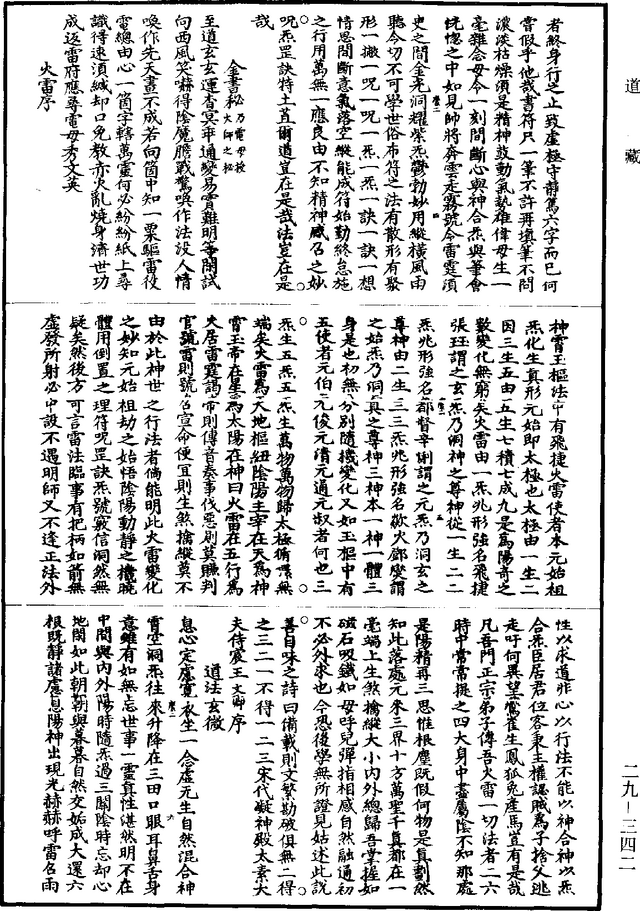 道藏
者終身行之止致虛極守靜篤六字而已何
嘗假乎他哉書符只一筆不許再填筆不問
濃淡枯燥須是精神鼓動氣勢雄偉毋生一
毫雜念毋令一刻間斷心與神合炁與筆會
恍惚之中如見師將奔雲走霧號令雷霆須
臾之間金光洞耀紫炁鬱勃妙用縱橫風雨
聽令切不可學世俗布符之法有散形有聚
形一撇一呪一呪一炁一炁一訣一訣一想
情思間斷意氣落空縱能成符始勤終怠施
之行用萬無一應良由不知精神感召之妙
呪炁罡訣特土苴爾道豈在是哉法豈在是
哉
金書祕乃電母授火師之祕
至道玄玄運杳冥牢通變易實難明等閑試
向西風笑嚇得陰魔膽戰驚喚作法沒人情
喚作先天畫不成若向箇中知一粟驅雷役
電總由心一箇字轄萬靈何必紛紛紙上尋
識得速須緘却口免教亦火亂燒身濟世功
成返雷府應尋電母秀文英
火雷序
神霄玉樞法中有飛捷火雷使者本元始祖
炁化生真形元始即太極也太極由一生二
因三生五由五生七積七成九是爲陽奇之
數變化無窮矣火雷由一炁兆形強名飛捷
張珏謂之玄炁乃洞神之尊神從一生二二
炁兆形強名都督辛漢臣謂之元炁乃洞玄之
尊神由二生三三炁兆形強名歘火鄧燮謂
之始炁乃洞真之尊神三神本一神一體三
身是也初無分別隨機變化又如玉樞中有
五使者元伯元俊元濆元通元叔者何也三
炁生五炁五炁生萬物萬物歸太極循環無
端矣火雷爲天地樞紐陰陽主宰在天爲神
霄玉帝在星爲太陽在神曰火雷在五行爲
火居雷霆謁帝則傳音奏事伐惡則莫賺判
官號雷則號召宣命便宜則生煞擒縱莫不
由於此神世之行法者倘能明此火雷變化
之妙知元始祖劫之始悟陰陽動靜之機曉
體用倒置之理符呪罡訣炁號竅信洞然無
疑矣然後方可言雷法臨事有把柄如箭無
虛發所射必中設不遇明師又不逢正法外
性以求道非心以行法不能以神合神以炁
合炁臣居君位客秉主權認賊爲子捨父逃
走吁何異望鷟雀生鳳狐兔產馬豈有是哉
凡吾門正宗弟子傳吾火雷一切法者二六
時中常常提之四大身中盡屬陰不知那處
是陽精再三思惟根塵既假何物是真劃然
知此落處元來三界十方萬聖千真都在一
毫端上生煞擒縱大小內外總歸吾掌握如
磁石吸鐵如母呼兒彈指相感自然融通初
不必外求也今恐後學無所證見姑述此說
善自味之詩曰備載則文繁勘破俱無二得
之三二一不得一二三宋代凝神殿太素大
夫侍宸王文卿序
道法玄微
息心定慮寬衣坐一念虛元生自然混合神
霄空洞炁往來升降在三田口眼耳鼻舌身
意雖有如無忘世事一靈真性湛然明不在
中間與內外陽時隨炁過三關陰時忘却心
地閑如此朝朝與暮暮自然交姤成大還六
根既靜諸慮息陽神出現光赫赫呼雷召雨
二九－三四二